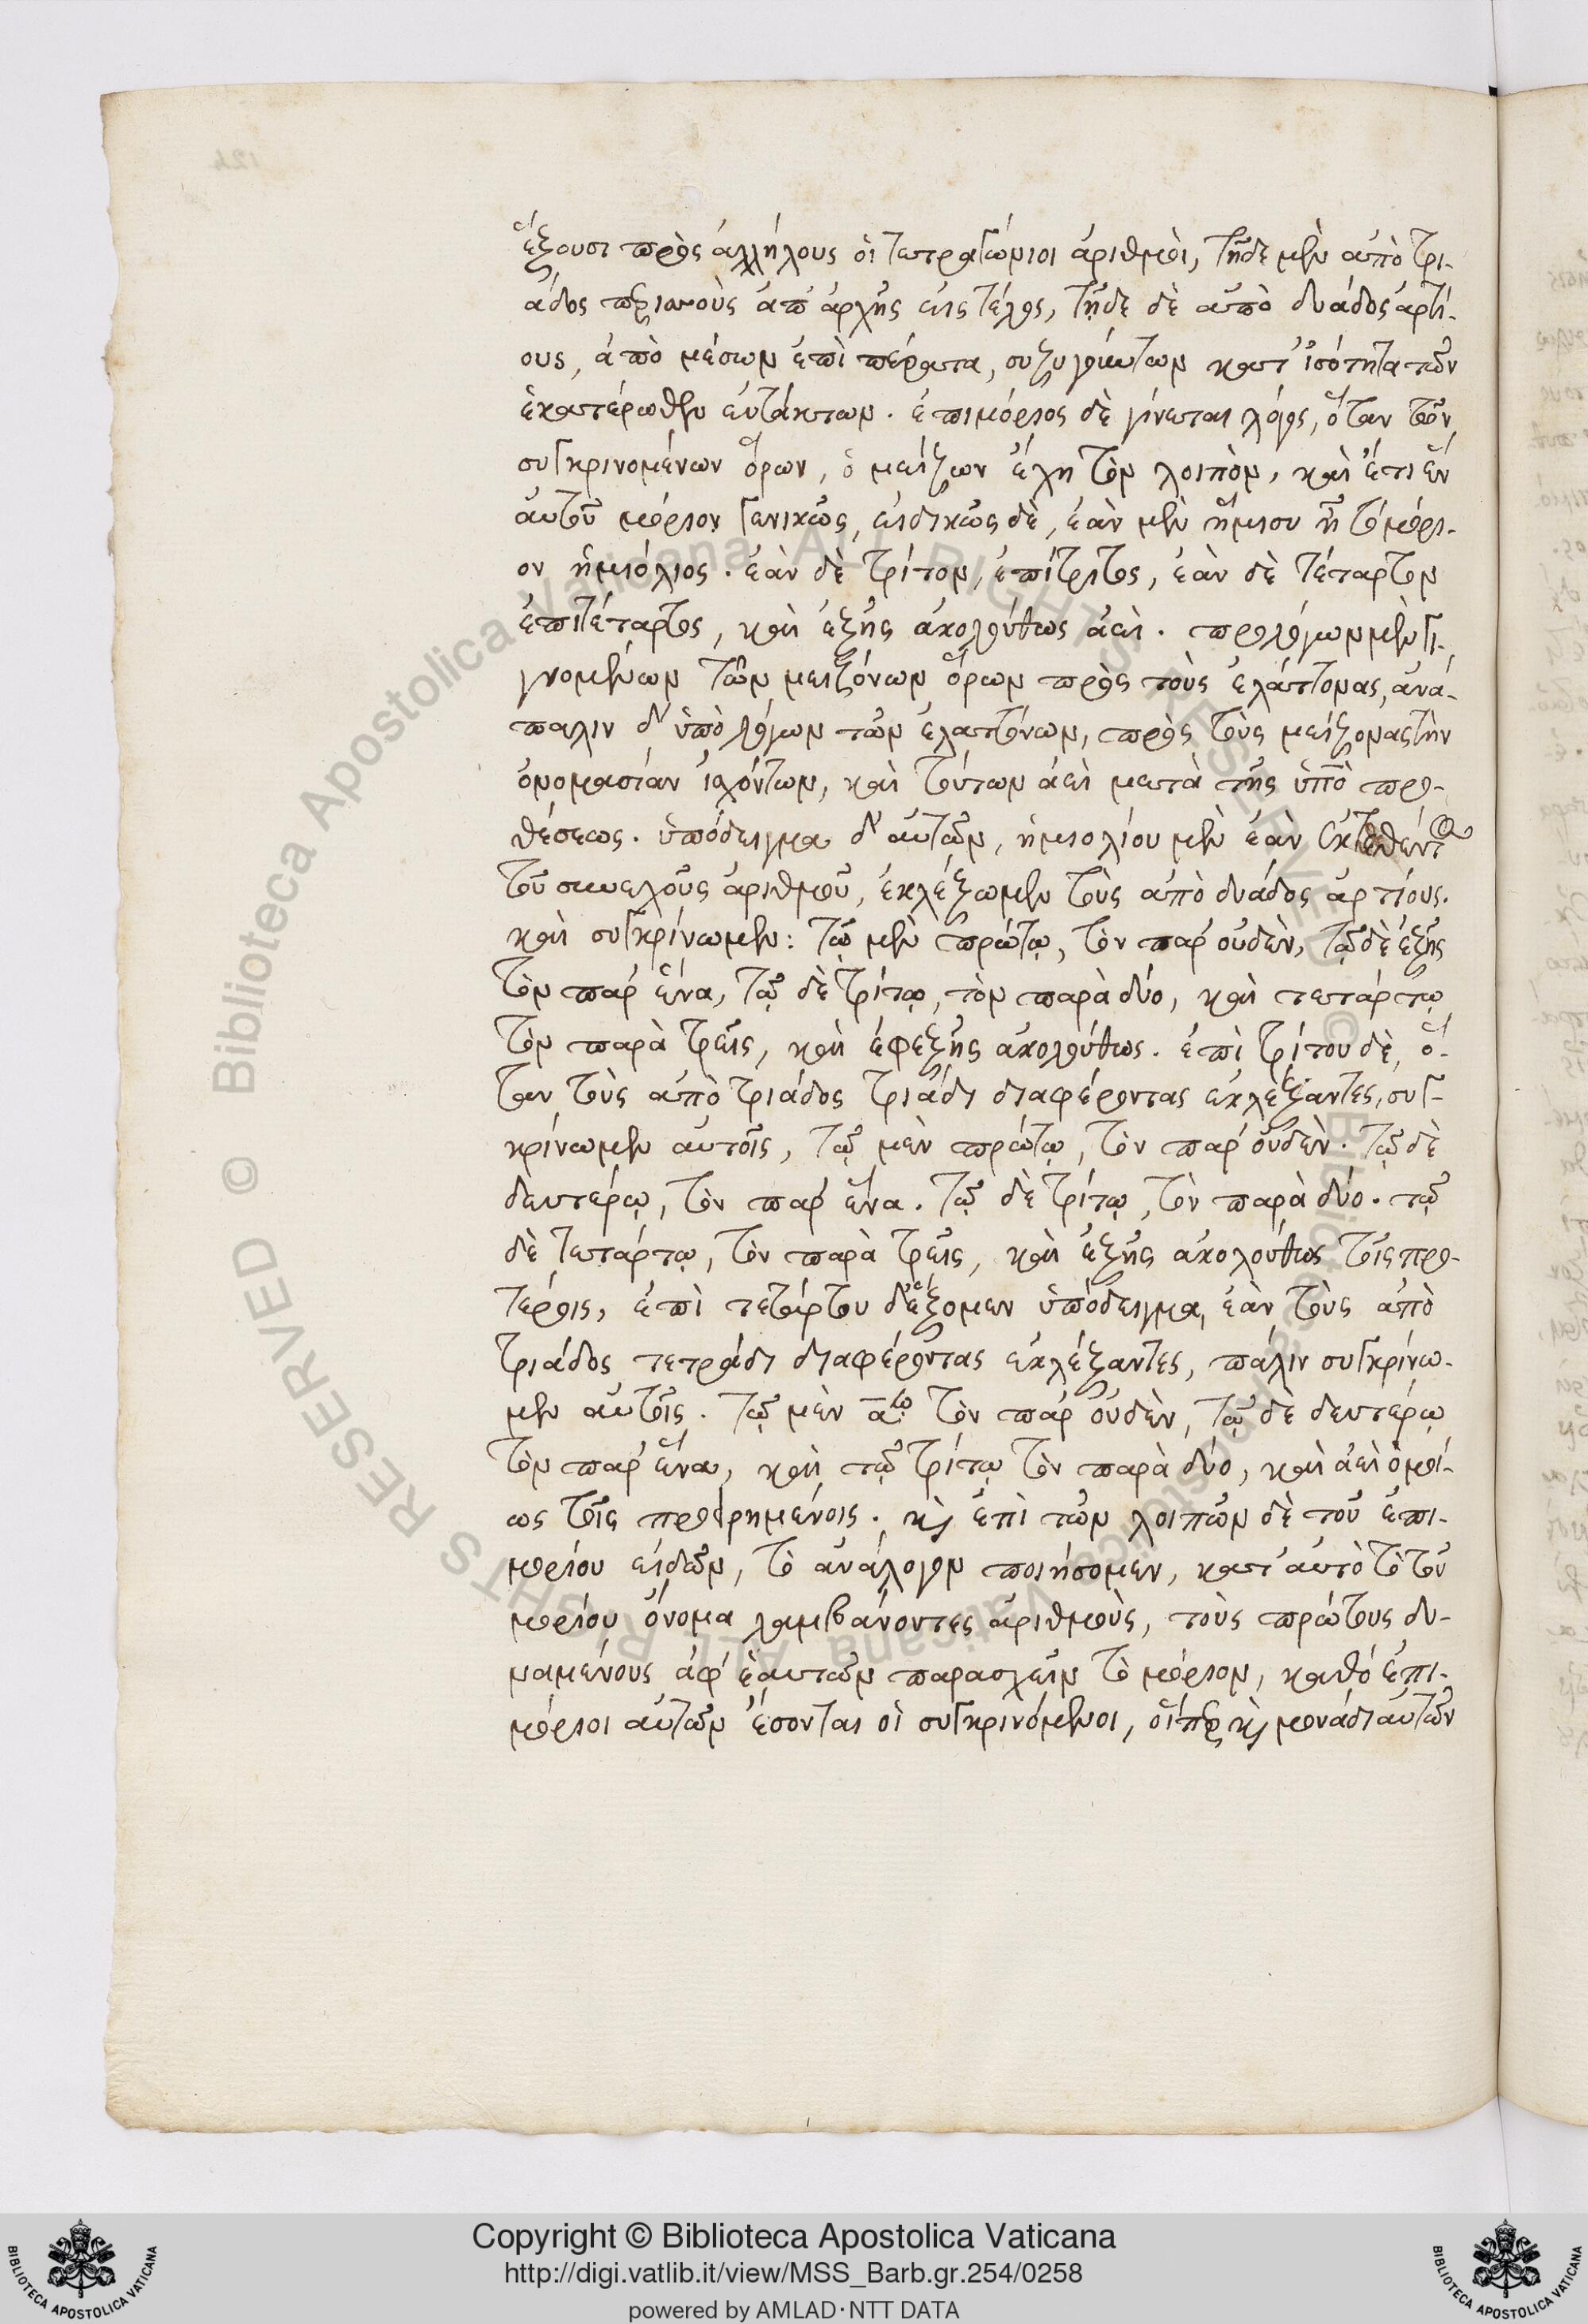 ἕξουσι πρὸς ἀλλήλους οἱ τετραγώνιοι ἀριθμοὶ, τῇδε μὲν ἀπὸ τρι-
άδος περισσοὺς ἀπ' ἀρχῆς εἰς τέλος, τῇδε δὲ ἀπὸ δυάδος ἀρτί-
ους, ἀπὸ μέσων ἐπὶ πέρατα, συζυγούντων κατ' ἰσότητα τῶν
ἑκατέρωθεν εὐτάκτων. ἐπιμόριος δὲ γίνεται λόγος, ὅταν τῶν
συγκρινομένων ὅρων, ὁ μείζων ἔχῃ τὸν λοιπὸν, καὶ ἔτι ἓν
αὐτοῦ μόριον γενικῶς, εἰδικῶς δὲ, ἐὰν μὲν ἥμισυ ᾖ τὸ μόρι-
ον ἡμιόλιος. ἐὰν δὲ τρίτον, ἐπίτριτος, ἐὰν δὲ τέταρτον
ἐπιτέταρτος, καὶ ἑξῆς ἀκολούθως ἀεὶ. προλόγων μὲν γι-
γνομένων τῶν μειζόνων ὅρων πρὸς τοὺς ἐλάττονας, ἀνά-
παλιν δ' ὑπολόγων τῶν ἐλαττόνων, πρὸς τοὺς μείζονας τὴν
ὀνομασίαν ἰσχόντων, καὶ τούτων ἀεὶ μετὰ τῆς ὑπὸ προ-
θέσεως. ὑπόδειγμα δ' αὐτῶν, ἡμιολίου μὲν ἐὰν ἐκτεθέντος
τοῦ συνεχοῦς ἀριθμοῦ, ἐκλέξωμεν τοὺς ἀπὸ δυάδος ἀρτίους.
καὶ συγκρίνωμεν: τῷ μὲν πρώτῳ, τὸν παρ' οὐδὲν, τῷ δὲ ἑξῆς
τὸν παρ' ἕνα, τῷ δὲ τρίτῳ, τὸν παρὰ δύο, καὶ τετάρτῳ
τὸν παρὰ τρεῖς, καὶ ἐφεξῆς ἀκολούθως. ἐπὶ τρίτου δὲ, ὅ-
ταν τοὺς ἀπὸ τριάδος τριάδι διαφέροντας ἐκλέξαντες, συγ-
κρίνωμεν αὐτοῖς, τῷ μὲν πρώτῳ, τὸν παρ' οὐδὲν. τῷ δὲ
δευτέρῳ, τὸν παρ' ἕνα. τῷ δὲ τρίτῳ, τὸν παρὰ δύο. τῷ
δὲ τετάρτῳ, τὸν παρὰ τρεῖς, καὶ ἑξῆς ἀκολούθως τοῖς προ-
τέροις, ἐπὶ τετάρτου δ' ἕξομεν ὑπόδειγμα, ἐὰν τοὺς ἀπὸ
τριάδος τετράδι διαφέροντας ἐκλέξαντες, πάλιν συγκρίνω-
μεν αὐτοῖς. τῷ μὲν α̅ῳ τὸν παρ' οὐδὲν, τῷ δὲ δευτέρῳ
τὸν παρ' ἕνα, καὶ τῷ τρίτῳ τὸν παρὰ δύο, καὶ ἀεὶ ὁμοί-
ως τοῖς προειρημένοις. καὶ ἐπὶ τῶν λοιπῶν δὲ τοῦ ἐπι-
μορίου εἰδῶν, τὸ ἀνάλογον ποιήσομεν, κατ' αὐτὸ τὸ τοῦ
μορίου ὄνομα λαμβάνοντες ἀριθμοὺς, τοὺς πρώτους δυ-
ναμένους ἀφ' ἑαυτῶν παρασχεῖν τὸ μόριον, καθὸ ἐπι-
μόριοι αὐτῶν ἔσονται οἱ συγκρινόμενοι, οἵπερ καὶ μονάδι αὐτῶν
Copyright © Biblioteca Apostolica Vaticana
http://digi.vatlib.it/view/MSS_Barb.gr.254/0258
powered by AMLAD·NTT DATA